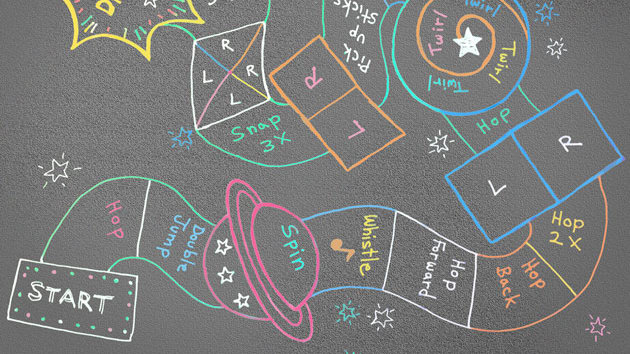 START
HOP
Double
Jump
Spin
Whistle
Hop
Forward
Hop
Back
Hop
2X
L
R
HOP
Twirl
Twirl
Twirl
Twirl
Pick
up
sticks
R
L
Snap
3X
R
R
L
L